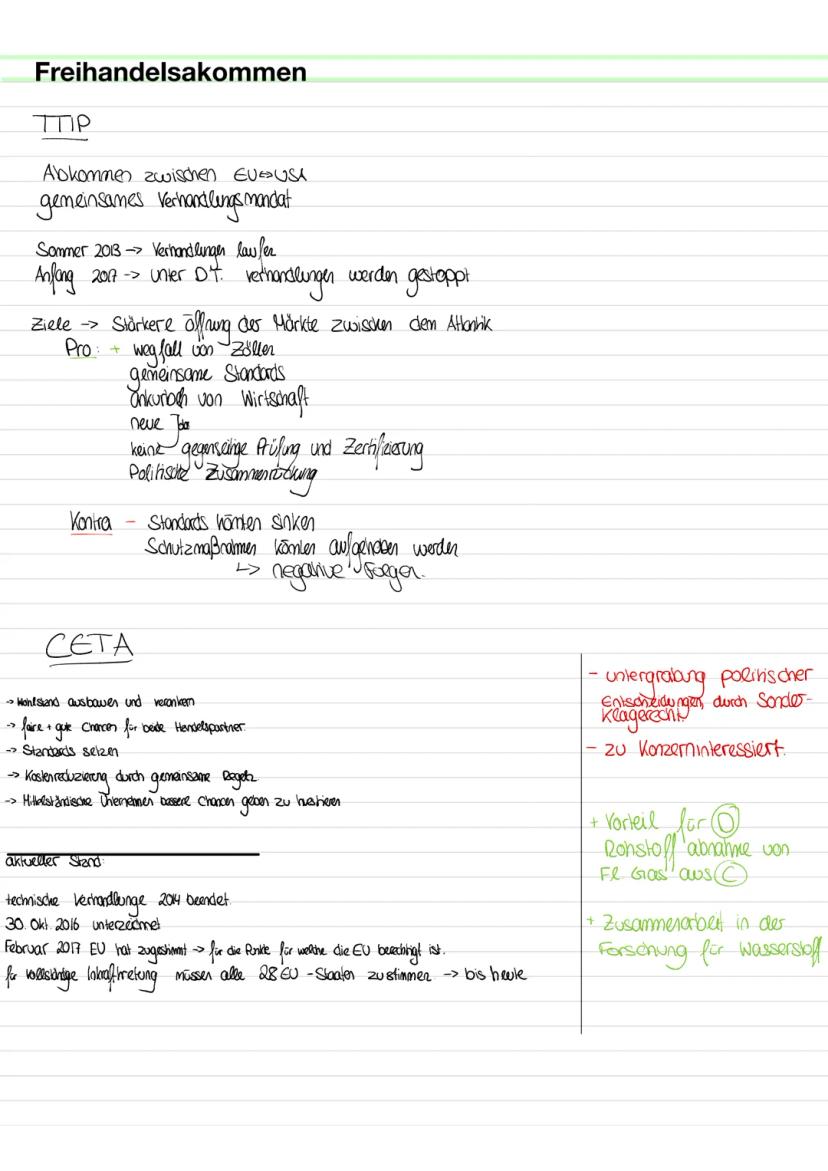 Freihandelsakommen
TTIP
Abkommen zwischen EU⇔USA
gemeinsames Verhandlungsmandat
Sommer 2013 -> Verhandlungen laufen
Anfang 2017 -> unter DT. verhandlungen werden gestoppt
Ziele -> Stärkere öffnung der Märkte zwischen dem Atlantik
Pro: + wegfall von Zöllen
gemeinsame Standards
ankurbeln von Wirtschaft
neue Jobs
keine gegenseitige Prüfung und Zertifizierung
Politische Zusammenrückung
Kontra - Standards könnten sinken
Schutzmaßnahmen könnten aufgehoben werden
↳ negative Folgen.
CETA
-> Wohlstand ausbauen und verankern
-> faire + gute Chancen für beide Handelspartner
-> Standards setzen
-> Kostenreduzierung durch gemeinsame Regeln
-> Mittelständische Unternehmen bessere Chancen geben zu
aktueller Stand:
technische Verhandlunge 2014 beendet
30. Okt. 2016 unterzeichnet
Februar 2017 EU hat zugestimmt -> für die Punkte für welche die EU berechtigt ist.
für vollständige Inkrafttretung müssen alle 28 EU-Staaten zustimmen -> bis heute
- untergrabung politischer
Entscheidungen durch Sonder-
klagerecht
- zu Konzerninteressiert.
+ Vorteil für D
Rohstoff abnahme von
Fl. Gas aus C
+ Zusammenarbeit in der
Forschung für Wasserstoff